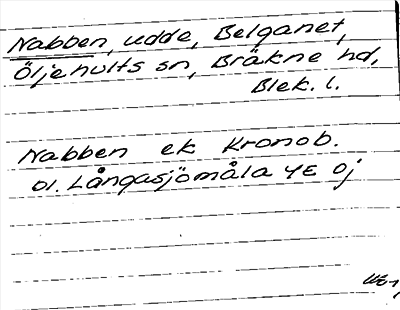 Nabben, udde, Belganet,
Öljehults sn, Bräkne hd,
Blek. l.
Nabben ek Kronob.
ol. Långasjömåla 4E Oj